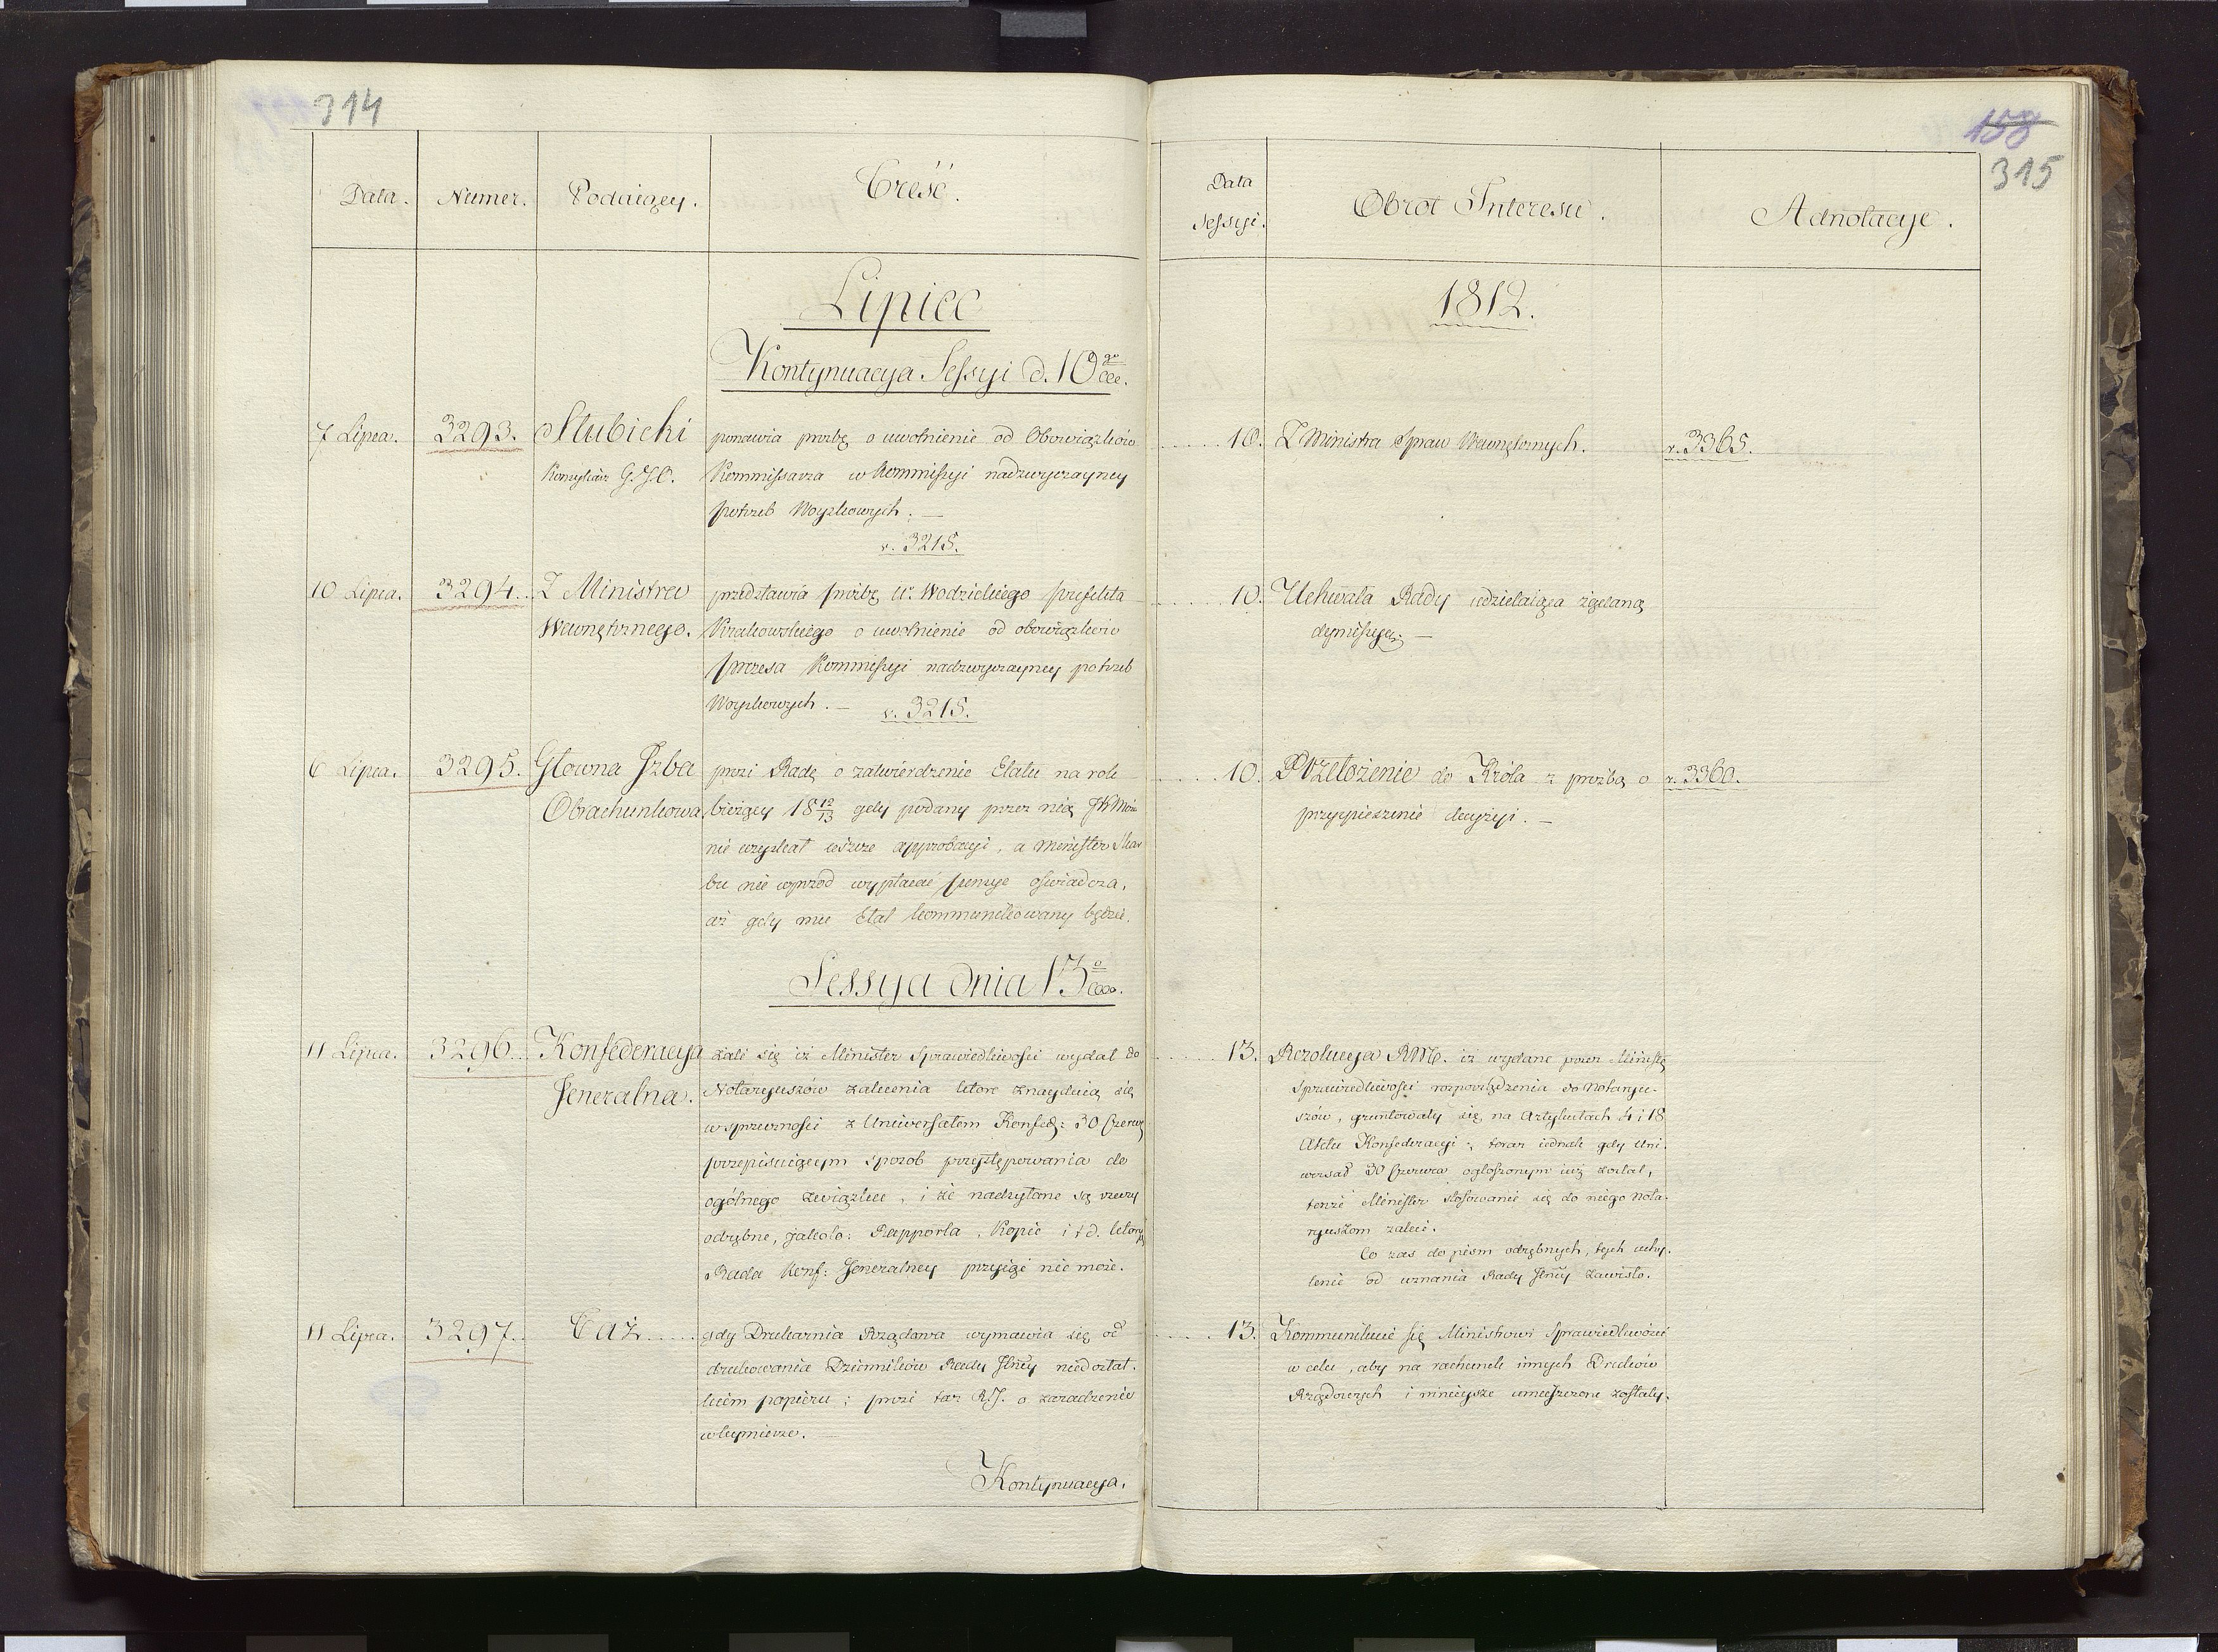 314
Data.
Numer.
Podaiący.
Treść.
Lipiec
Kontynuacya Sessyi d. 10
7 Lipca.
3293.
Słubicki
G. J. O.
ponawia prozbę o uwolnienie od Obowiązków
Kommissarza w Kommissyi nadzwyczayney
potrzeb Woyskowych. —
v. 3215.
10 Lipca.
3294.
Z Ministra
Wewnętrznego.
przedstawia prozbę Ur. Wodzickiego prefekta
Krakowskiego o uwolnienie od obowiązków
prezesa Kommissyi nadzwyczayney potrzeb
Woyskowych. — v. 3215.
6 Lipca.
3295.
Głowna Jzba
Obrachunkowa
prosi Radę o zatwierdzenie Etatu na rok
bieżący 18 12/13 gdy podany przez nię
nie uzyskał ieszcze approbacyi, a Minister Skar
bu nie wprzod wypłacać pensye oświadcza,
aż gdy mu Etat kommunikowany będzie.
Sessya dnia 13
11 Lipca.
3296.
Konfederacya
Jeneralna.
żali się iż Minister Sprawiedliwosci wydał do
Notaryuszów zalecenia które znayduią się
w sprzeczności z Uniwersałem Konfed: 30 Czerwc
przepisuiącym sposob przystępowania do
ogólnego związku, i że nadsyłane są rzeczy
odrębne, jakoto: Rapporta, Kopie i t d. ktorych
Rada Konf: Jeneralney przyiąć nie może.
11 Lipca.
3297.
Taż.....
gdy Drukarnia Rządowa wymawia się od
drukowania Dzienników Rady Jlney niedostat.
kiem papieru; prosi taż R. J. o zaradzenie
w tey mierze. —
Kontynuacya.
158
315
Data
Sessyi.
Obrot Interesu.
Adnotacye.
1812.
10. Z Ministra Spraw Wewnętrznych.
v. 3365.
10. Uchwała Rady udzielaiąca żądaną
dymissyę. —
10. Przełożenie do Króla z prożbą o
v. 3360.
przyspieszenie decyzyi. —
13. Rezolucya iż wydane przez Ministra
Sprawiedliwosci rozporządzenia do Notaryu-
szów, gruntowały się na Artykułach 4 i 18
Aktu Konfederacyi; teraz iednak gdy Uni.
wersał 30 Czerwca ogłoszonym iuż został,
tenże Minister stosowanie się do niego Nota-
ryuszom zaleci.
Co zas do pism odrębnych, tych uchy.
lenie od uznania Rady Jlney zawisło.
13. Kommunikuie się Ministrowi Sprawiedliwości
w celu, aby na rachunek innych Druków
Rządowych i ninieysze umieszczone zostały.